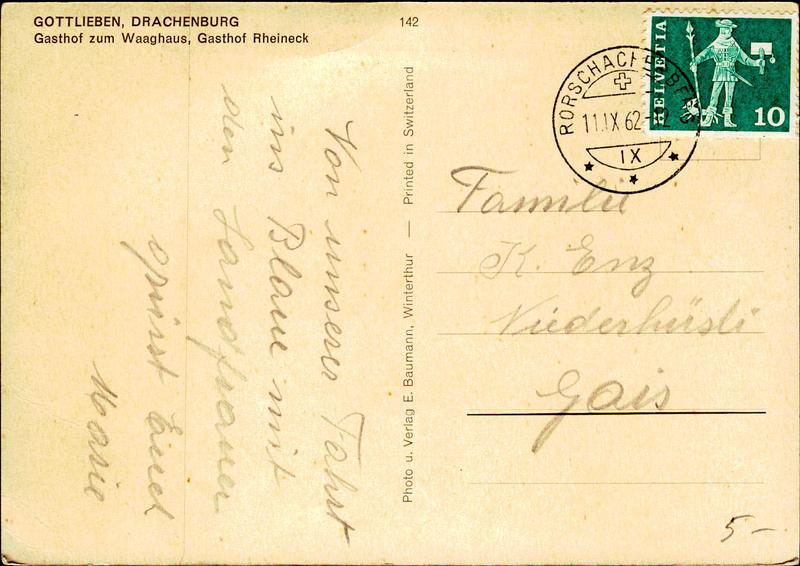 GOTTLIEBEN, DRACHENBURG
Gasthof zum Waaghaus, Gasthof Rheineck
142
Von unserer Fahrt
ins Blaue mit
den Landfrauen
grüsst Euch
Marie
Photo u. Verlag E. Baumann, Winterthur — Printed in Switzerland
HELVETIA
10
RORSCHACH
11.IX 62
IX
Familie
K. Enz
Niederhüsli
Gais
5-